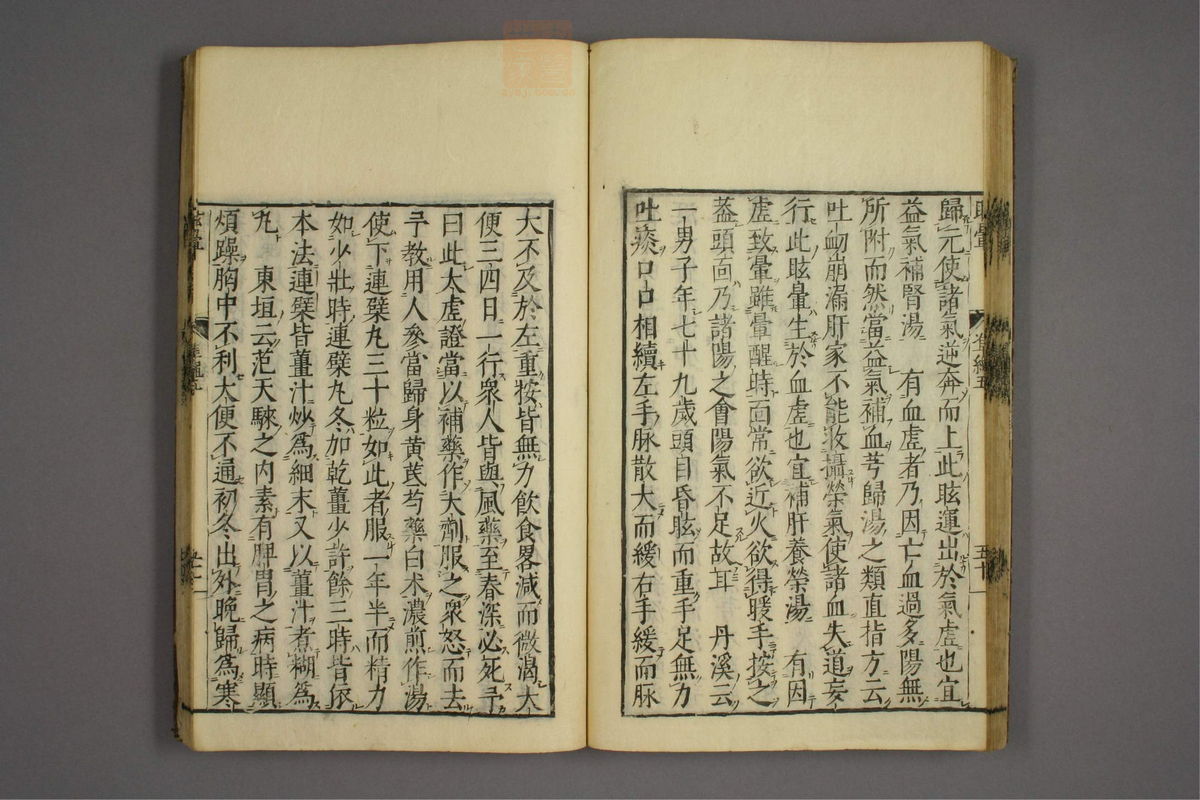 歸元使諸氣逆奔而上此眩運出於氣虚也宜
益氣補腎湯 有血虚者乃因亡血過多陽無
所附而然當益氣補血芎歸湯之類直指方云
吐衂崩漏肝家不能收攝榮氣使諸血失道妄
行此眩暈生於血虚也宜補肝養榮湯 有因
虚致暈雖暈醒時面常欲近火欲得暖手按之
蓋頭面乃諸陽之會陽氣不足故耳 丹溪云
一男子年七十九歳頭目昏眩而重手足無力
吐痰口口相續左手脉散大而緩右手緩而脉
大不及於左重按皆無力飲食畧減而微渴大
便三四日一行衆人皆與風藥至春深必死予
曰此大虚證當以補藥作大劑服之衆怒而去
予教用人參當歸身黃芪芍藥白术濃煎作湯
使下連蘗丸三十粒如此者服一年半而精力
如少壯時連蘗丸冬加乾薑少許餘三時皆依
本法連蘗皆薑汁炒爲細末又以薑汁煮糊爲
丸 東垣云范天騋之内素有脾胃之病時顯
煩躁胸中不利大便不通初冬出外晚歸爲寒